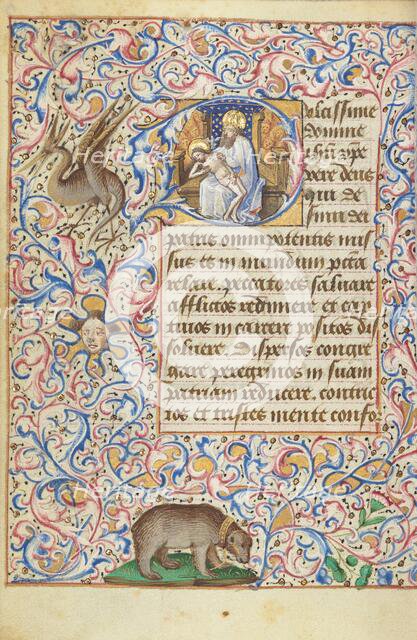 Dulcissime
domine
ihu xpe
vere deus
qui de
sinu dei
patris omnipotentis mis
sus es in mundum pctā
relaxare. peccatores saluare
afflictos redimere et cap
tiuos in carcere positos dis
soluere. Dispersos congre
gare peregrinos in suam
patriam reducere. contric
tos et tristes mente conso
Heritage